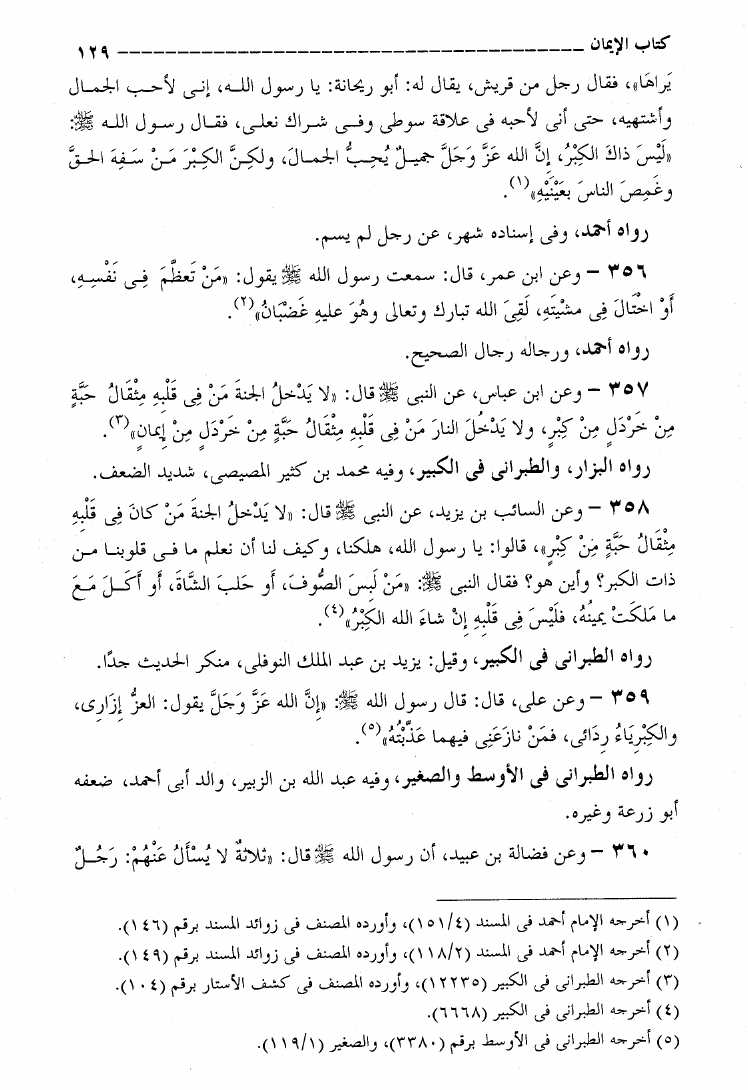 كتاب الإيمان ــــــــــــــــــــــــــــــــــــــــ ١٢٩
يَراهَا»، فقال رجل من قريش، يقال له: أبو ريحانة: يا رسول اللـه، إنـى لأحـب الجمـال
وأشتهيه، حتى أنى لأحبه فى علاقة سوطى وفـى شـراك نعلـى، فقـال رسـول اللـه ﷺ:
«لَيْسَ ذاكَ الكِبْرُ، إِنَّ الله عَزَّ وَجَلَّ جميـلٌ يُحِـبُّ الجمـالَ، ولكِـنَّ الكِبْـرَ مَـنْ سَـفِهَ الحـقَّ
وغَمِصَ الناسَ بعَيْنَيْهِ»(١).
رواه أحمد، وفى إسناده شهر، عن رجل لم يسم.
٣٥٦ – وعن ابن عمر، قال: سمعت رسول الله ﷺ يقول: «مَنْ تَعظَّمَ فِـى نَفْسِـهِ،
أَوْ اخْتَالَ فِى مشْيَتهِ، لَقِىَ الله تبارك وتعالى وهُوَ عليهِ غَضْبَانُ»(٢).
رواه أحمد، ورجاله رجال الصحيح.
٣٥٧ – وعن ابن عباس، عن النبى ﷺ قال: «لا يَدْخلُ الجنةَ مَنْ فِى قَلْبِهِ مِثْقَالُ حَبَّةٍ
مِنْ خَرْدَلٍ مِنْ كِبْرٍ، ولا يَدْخُلُ النارَ مَنْ فِى قَلْبِهِ مِثْقَالُ حَبَّةٍ مِنْ خَرْدَلٍ مِنْ إِيمَانٍ»(٣).
رواه البزار، والطبرانى فى الكبير، وفيه محمد بن كثير المصيصى، شديد الضعف.
٣٥٨ – وعن السائب بن يزيد، عن النبى ﷺ قال: «لا يَدْخلُ الجنةَ مَنْ كانَ فِى قَلْبِهِ
مِثْقَالُ حَبَّةٍ مِنْ كِبْرٍ»، قالوا: يا رسول الله، هلكنا، وكيف لنا أن نعلم ما فـى قلوبنـا مـن
ذات الكبر؟ وأين هو؟ فقال النبى ﷺ: «مَنْ لَبِسَ الصُّوفَ، أو حَلبَ الشَّاةَ، أو أَكَـلَ مَـعَ
ما مَلكَتْ يمينُهُ، فلَيْسَ فِى قَلْبِهِ إِنْ شاءَ الله الكِبْرُ»(٤).
رواه الطبرانى فى الكبير، وقيل: يزيد بن عبد الملك النوفلى، منكر الحديث جدًا.
٣٥٩ – وعن على، قال: قال رسول الله ﷺ: «إِنَّ الله عَزَّ وَجَلَّ يقول: العزُّ إِزَارِى،
والكِبْرِيَاءُ رِدَائى، فمَنْ نازَعَنِى فيهما عَذَّبْتُهُ»(٥).
رواه الطبرانى فى الأوسط والصغير، وفيه عبد الله بن الزبير، والد أبى أحمد، ضعفه
أبو زرعة وغيره.
٣٦٠ – وعن فضالة بن عبيد، أن رسول الله ﷺ قال: «ثلاثةٌ لا يُسْأَلُ عَنْهُمْ: رَجُـلٌ
(١) أخرجه الإمام أحمد فى المسند (١٥١/٤)، وأورده المصنف فى زوائد المسند برقم (١٤٦).
(٢) أخرجه الإمام أحمد فى المسند (١١٨/٢)، وأورده المصنف فى زوائد المسند برقم (١٤٩).
(٣) أخرجه الطبرانى فى الكبير (١٢٢٣٥)، وأورده المصنف فى كشف الأستار برقم (١٠٤).
(٤) أخرجه الطبرانى فى الكبير (٦٦٦٨).
(٥) أخرجه الطبرانى فى الأوسط برقم (٣٣٨٠)، والصغير (١١٩/١).